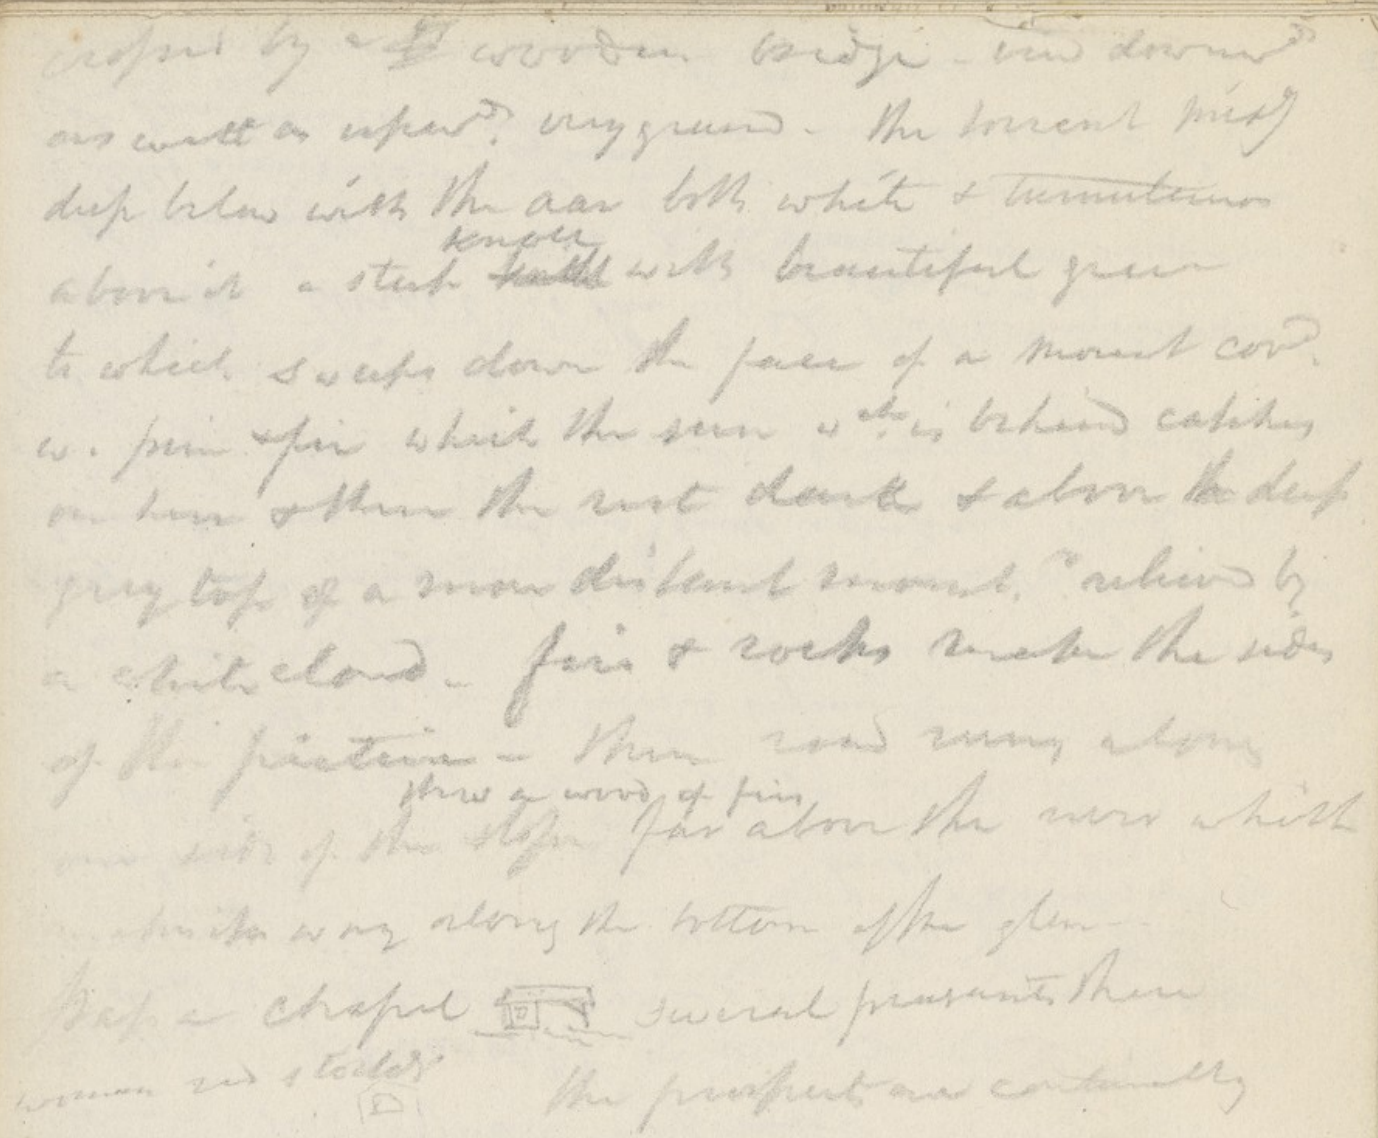 crossed by a wooden bridge - view downwd
as well as upwd. very grand. the torrent mixg
deep below with the aar both white & tumultuous
above it a steep knoll with beautiful green
to which sweeps down the face of a mount covd.
w. pine & fir which the sun wch. is behind catches
on here & there the rest dark & above the deep
grey top of a more distant mount.n relieved by
a white cloud - firs & rocks make the sides
of the picture - then road runs along
thro a wood of firs
one side of the slope far above the river which
makes its way along the bottom of the glen
pass a chapel several peasants there
woman red stockgs
the prospects are continually